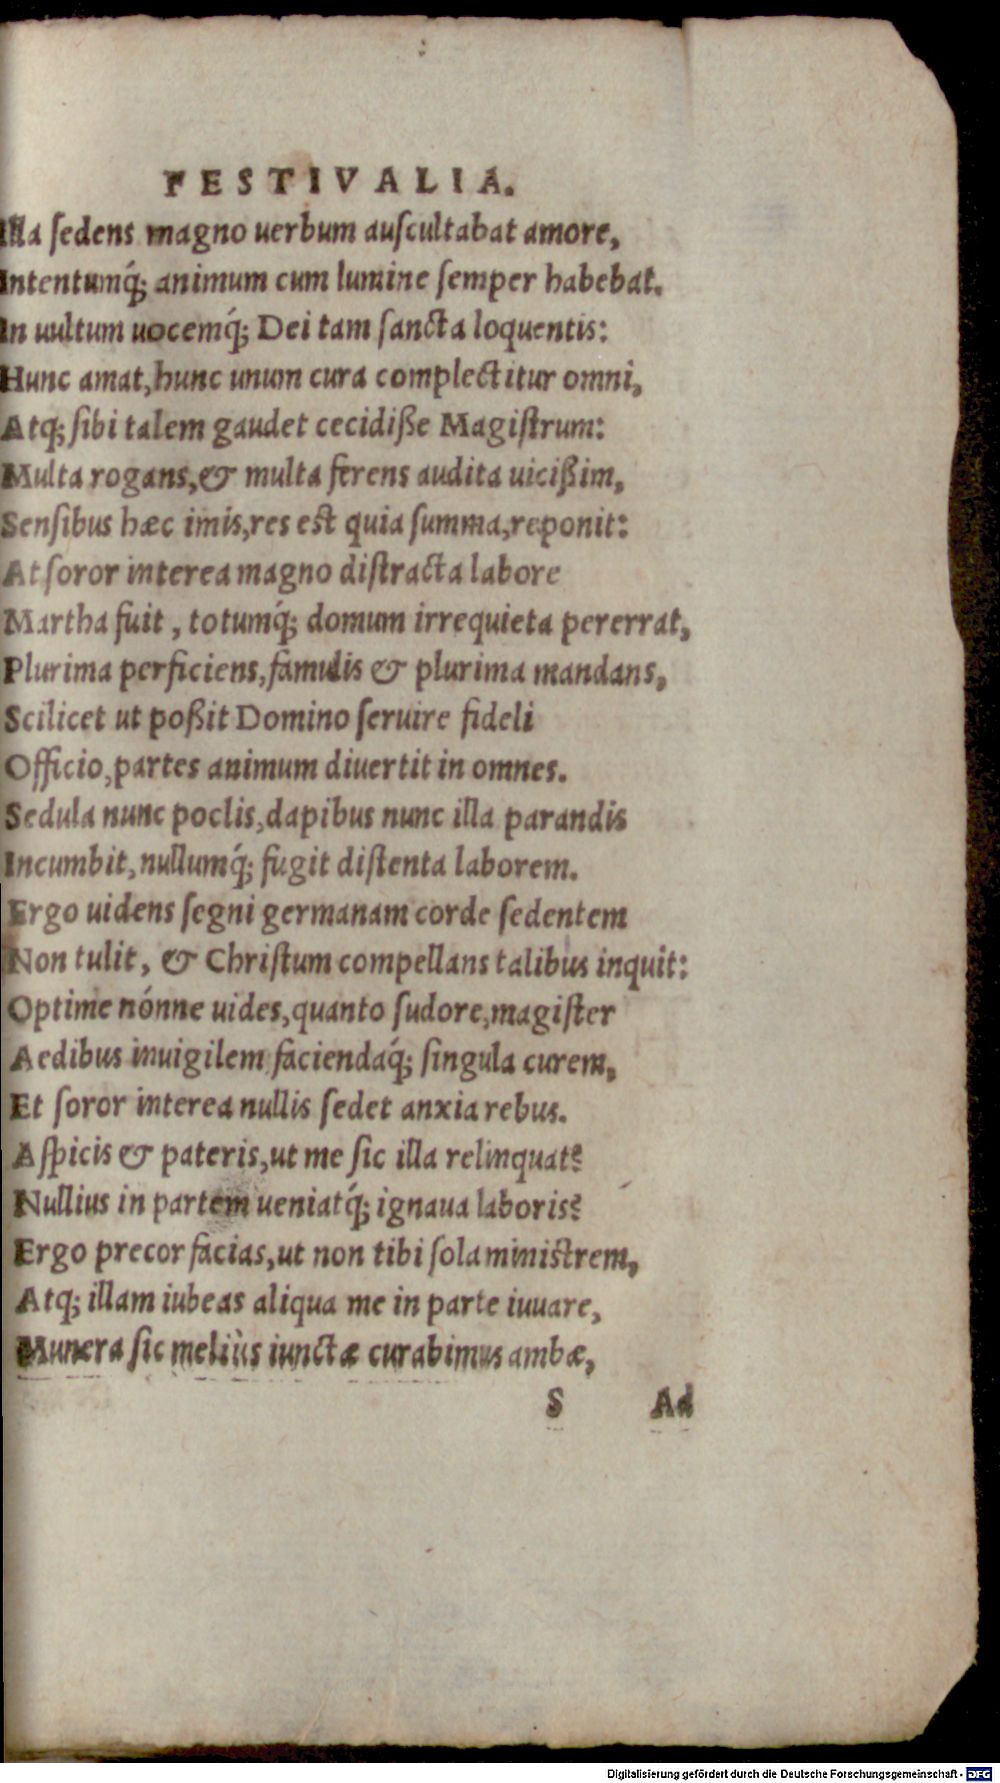 FESTIVALIA.
Illa ſedens magno uerbum auſcultabat amore,
Intentumq́; animum cum lumine ſemper habebat.
In uultum uocemq́; Dei tam ſancta loquentis:
Hunc amat, hunc unum cura complectitur omni,
Atq; ſibi talem gaudet cecidiße Magiſtrum:
Multa rogans, & multa ferens audita uicißim,
Senſibus hæc imis, res est quia ſumma, reponit:
At ſoror interea magno diſtracta labore
Martha fuit, totumq́; domum irrequieta pererrat,
Plurima perficiens, famulis & plurima mandans,
Scilicet ut poßit Domino ſeruire fideli
Officio, partes animum diuertit in omnes.
Sedula nunc poclis, dapibus nunc illa parandis
Incumbit, nullumq́; fugit diſtenta laborem.
Ergo uidens ſegni germanam corde ſedentem
Non tulit, & Chriſtum compellans talibus inquit:
Optime nónne uides, quanto ſudore, magiſter
Aedibus inuigilem faciendaq́; ſingula curem,
Et ſoror interea nullis ſedet anxia rebus.
Aſpicis & pateris, ut me ſic illa relinquat?
Nullius in partem ueniatq́; ignaua laboris?
Ergo precor facias, ut non tibi ſola miniſtrem,
Atq; illam iubeas aliqua me in parte iuuare,
Munera ſic meliùs iunctæ curabimus ambæ,
S Ad
Digitalisierung gefördert durch die Deutsche Forschungsgemeinschaft - DFG